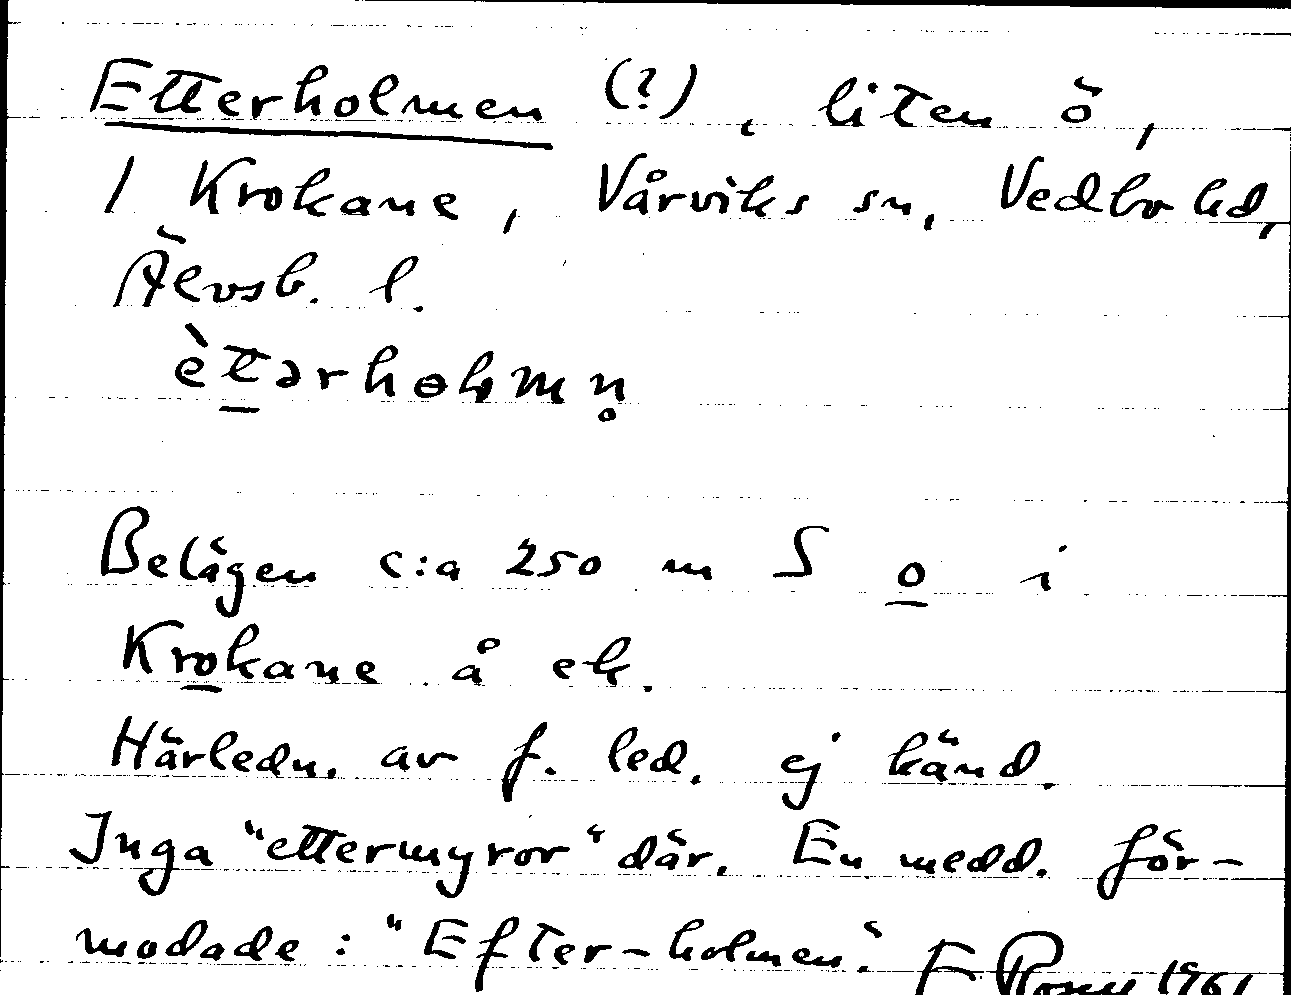 Etterholmen (?), liten ö,
I Krokane, Vårviks sn, Vedbo hd,
Älvsb. l.
ètərhɵlmn̥
Belägen c:a 250 m S o i
Krokane å ek.
Härledn. av f. led. ej känd.
Inga "ettermyror" där. En medd. för-
modade: "Efter-holmen".
1961